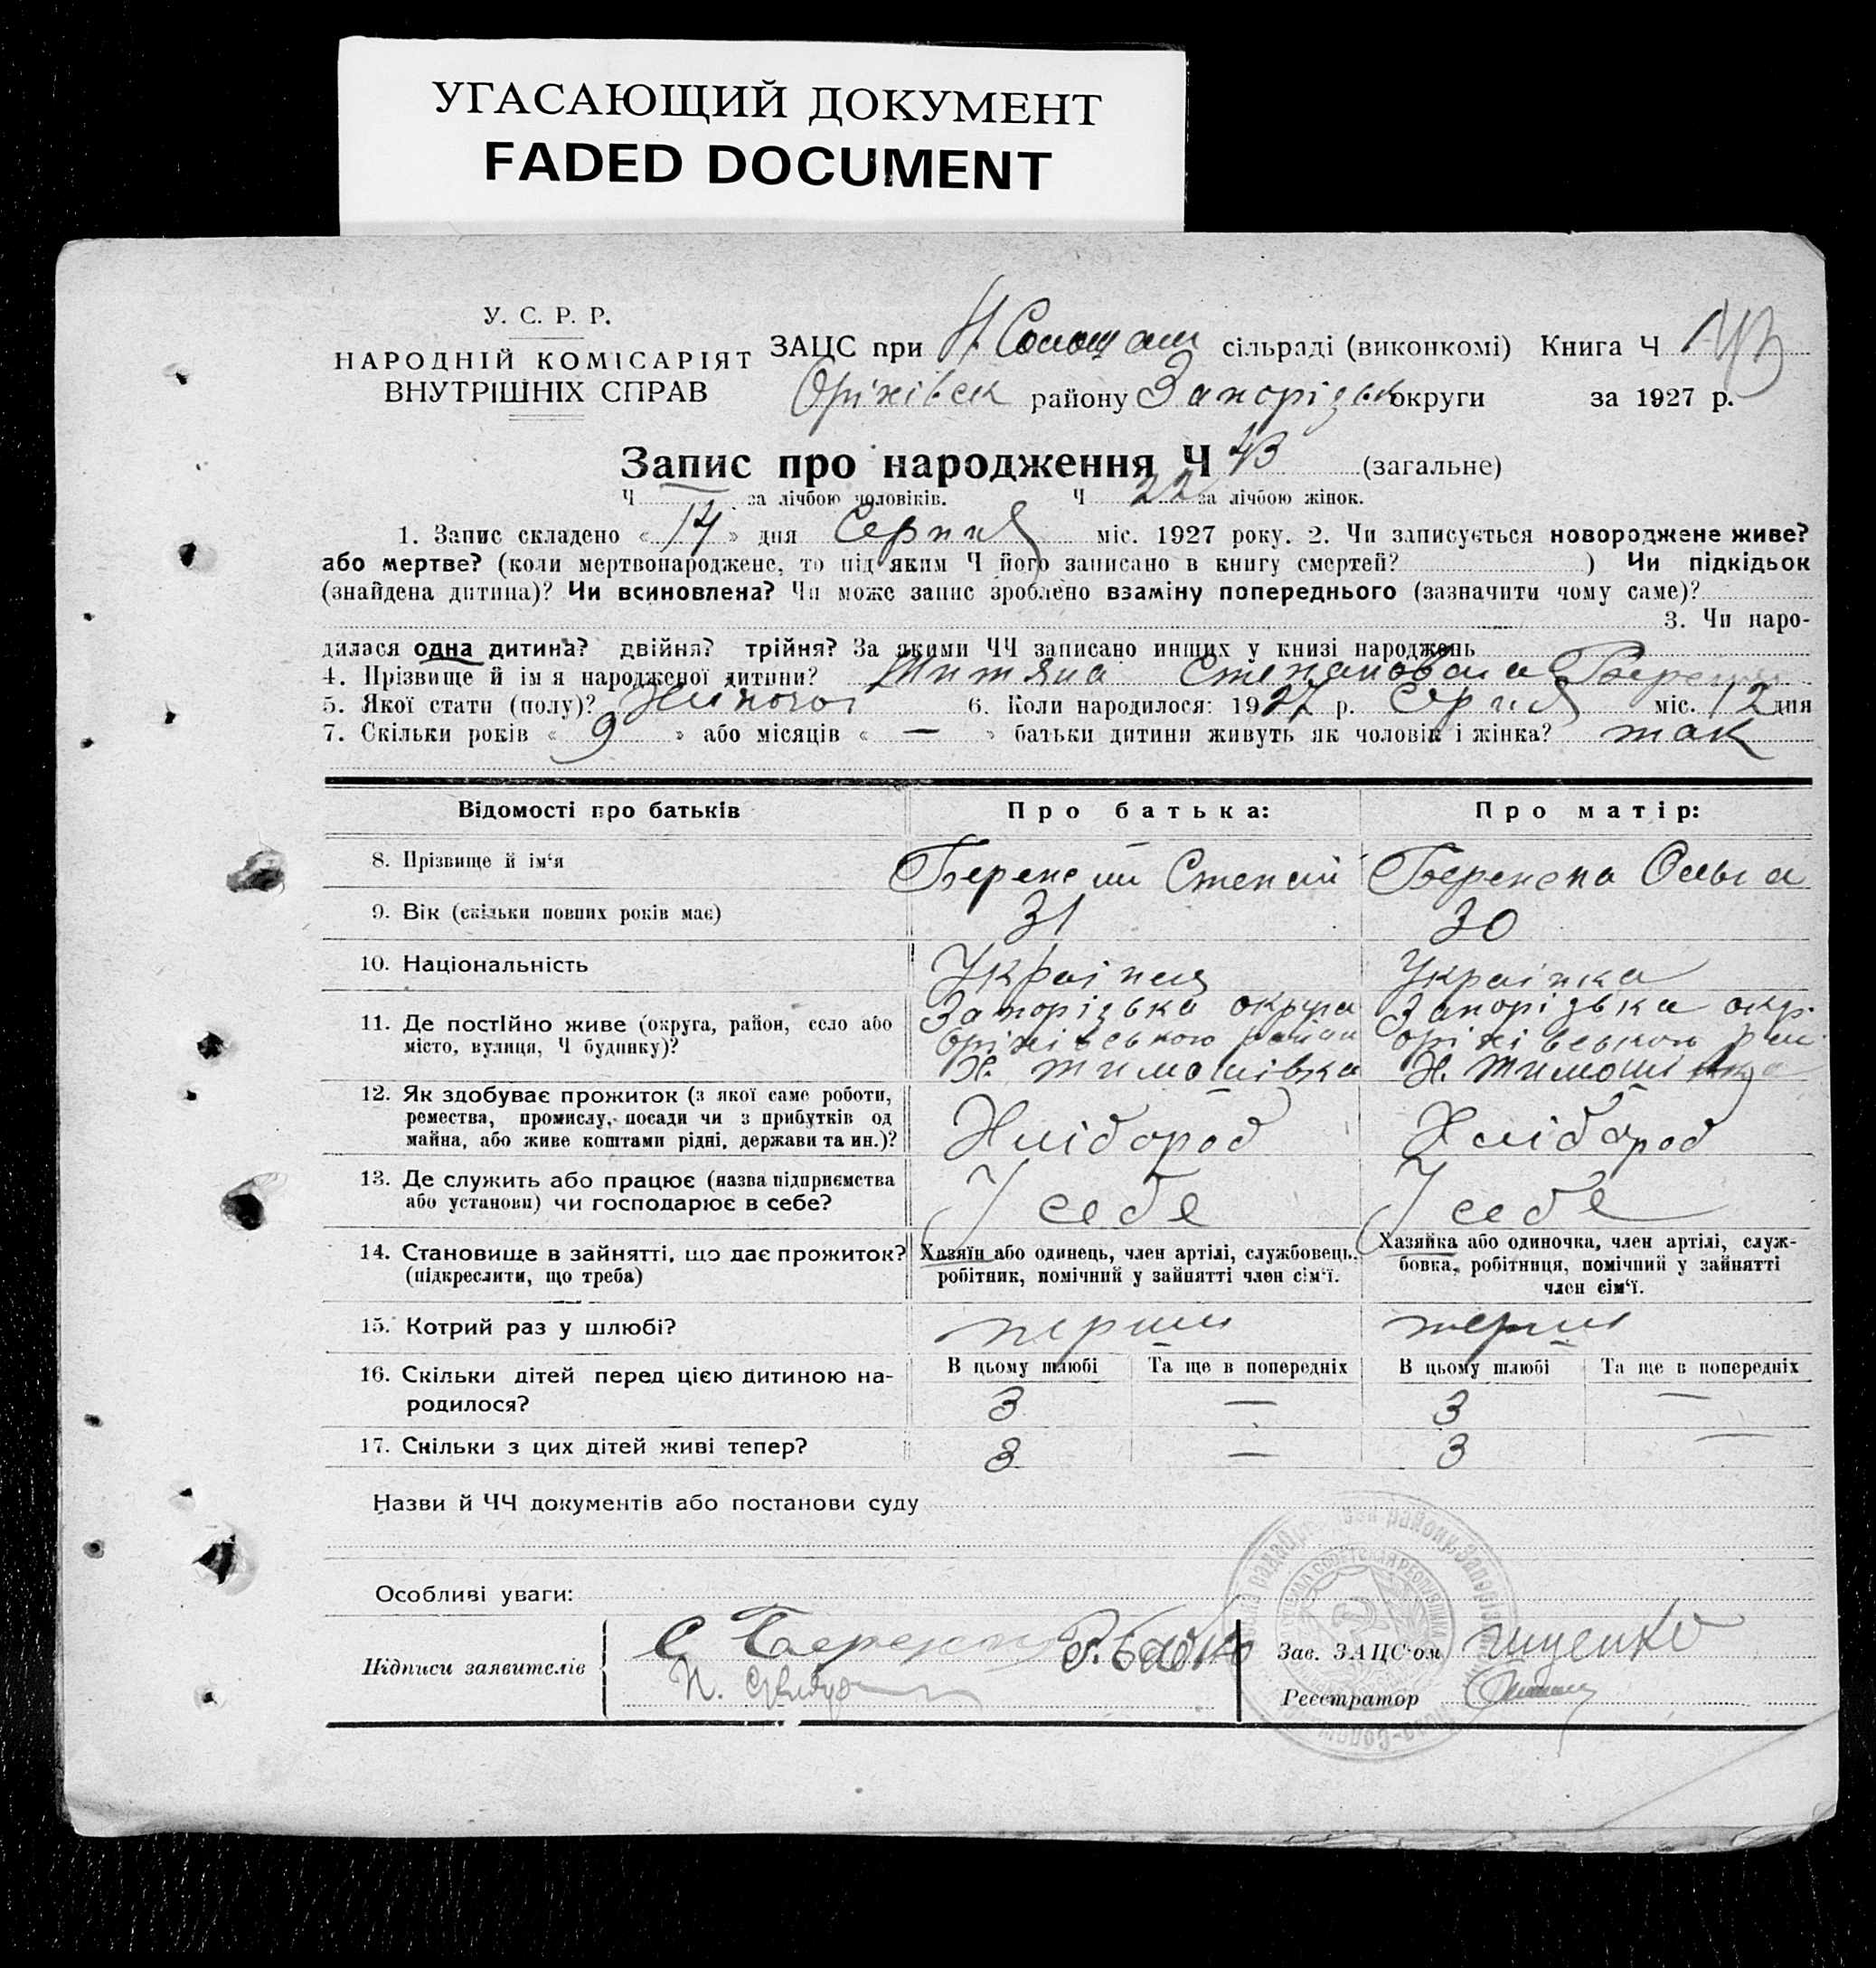 УГАСАЮЩИЙ ДОКУМЕНТ
FADED DOCUMENT
У. С. Р. Р.
НАРОДНІЙ КОМІСАРІЯТ
ВНУТРІШНІХ СПРАВ
ЗАЦС при сільраді (виконкомі) Книга Ч
Оріхівськ району Запорізьк округи за 1927 р.
Запис про народження Ч 43 (загальне)
Ч — за лічбою чоловіків. Ч 22 за лічбою жінок.
1. Запис складено « 14 » дня Серпня міс. 1927 року. 2. Чи записується новороджене живе?
або мертве? (коли мертвонароджене, то під яким Ч його записано в книгу смертей? ) Чи підкідьок
(знайдена дитина)? Чи всиновлена? Чи може запис зроблено взаміну попереднього (зазначити чому саме)?
3. Чи наро-
дилася одна дитина? двійня? трійня? За якими ЧЧ записано инших у книзі народжень
4. Прізвище й ім я народженої дитини? Степановна
5. Якої стати (полу)? Жіночої 6. Коли народилося: 1927 р. Серпня міс. 12 дня
7. Скільки років « 9 » або місяців « — » батьки дитини живуть як чоловік і жінка? так
Відомості про батьків Про батька: Про матір:
8. Прізвище й ім'я Степан Ольга
9. Вік (скільки повних років має) 31 30
10. Національність Українец Українка
11. Де постійно живе (округа, район, село або Запорізька округа Запорізька окр.
місто, вулиця, Ч будинку)? Оріхівського район Оріхівського рай.
Х. Тимошівка Х. Тимошівка
12. Як здобуває прожиток (з якої саме роботи, Хлібороб Хлібороб
ремества, промислу, посади чи з прибутків од
майна, або живе коштами рідні, держави та ин.)?
13. Де служить або працює (назва підприємства У себе У себе
або установи) чи господарює в себе?
14. Становище в зайнятті, що дає прожиток? Хазяїн або одинець, член артілі, службовець, Хазяйка або одиночка, член артілі, служ-
(підкреслити, що треба) робітник, помічний у зайнятті член сім'ї. бовка, робітниця, помічний у зайнятті
член сім'ї.
15. Котрий раз у шлюбі? перший перший
16. Скільки дітей перед цією дитиною на- В цьому шлюбі Та ще в попередніх В цьому шлюбі Та ще в попередніх
родилося? 3 — 3 —
17. Скільки з цих дітей живі тепер? 3 — 3 —
Назви й ЧЧ документів або постанови суду
Особливі уваги:
Підписи заявителів
Зав. ЗАЦС'ом
Реєстратор